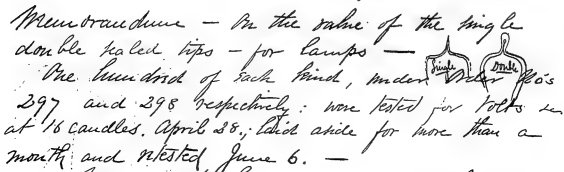 Memorandum – On the value of the single
double sealed tips – for lamps –
Single Double
One hundred of each kind, under Order Nos
297 and 298 respectively: were tested for Volts
at 16 candles. April 28., laid aside for more than a
month and retested June 6. –